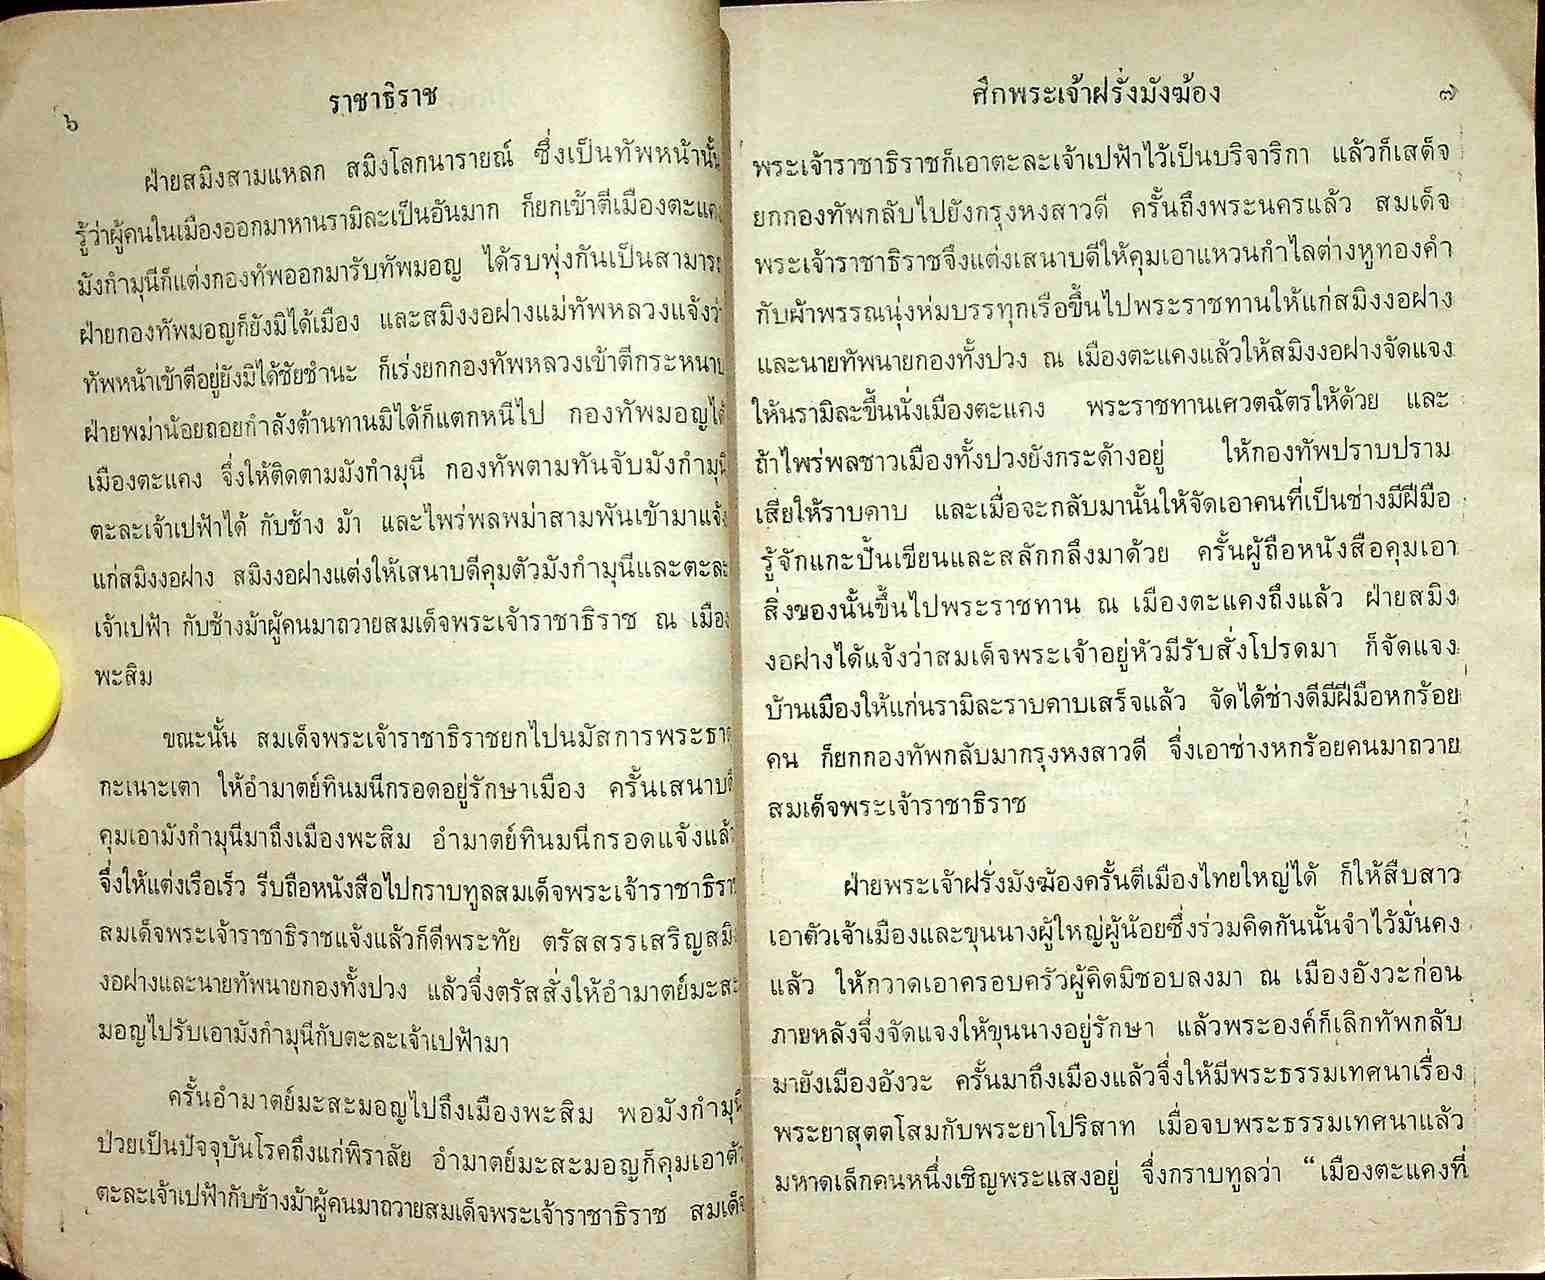 ๖
ราชาธิราช
ฝ่ายสมิงสามแหลก สมิงโลกนารายณ์ ซึ่งเป็นทัพหน้านั้น
รู้ว่าผู้คนในเมืองออกมาหานรามิละเป็นอันมาก ก็ยกเข้าตีเมืองตะแคง
มังกำมุนีก็แต่งกองทัพออกมารับทัพมอญ ได้รบพุ่งกันเป็นสามารถ
ฝ่ายกองทัพมอญก็ยังมิได้เมือง และสมิงงอฝางแม่ทัพหลวงแจ้งว่า
ทัพหน้าเข้าตีอยู่ยังมิได้ชัยชำนะ ก็เร่งยกกองทัพหลวงเข้าตีกระหนาบ
ฝ่ายพม่าน้อยถอยกำลังต้านทานมิได้ก็แตกหนีไป กองทัพมอญได้
เมืองตะแคง จึ่งให้ติดตามมังกำมุนี กองทัพตามทันจับมังกำมุนี
ตะละเจ้าเปฟ้าได้ กับช้าง ม้า และไพร่พลพม่าสามพันเข้ามาแจ้ง
แก่สมิงงอฝาง สมิงงอฝางแต่งให้เสนาบดีคุมตัวมังกำมุนีและตะละ
เจ้าเปฟ้า กับช้างม้าผู้คนมาถวายสมเด็จพระเจ้าราชาธิราช ณ เมือง
พะสิม
ขณะนั้น สมเด็จพระเจ้าราชาธิราชยกไปนมัสการพระธาตุ
กะเนาะเตา ให้อำมาตย์ทินมนีกรอดอยู่รักษาเมือง ครั้นเสนาบดี
คุมเอามังกำมุนีมาถึงเมืองพะสิม อำมาตย์ทินมนีกรอดแจ้งแล้ว
จึ่งให้แต่งเรือเร็ว รีบถือหนังสือไปกราบทูลสมเด็จพระเจ้าราชาธิราช
สมเด็จพระเจ้าราชาธิราชแจ้งแล้วก็ดีพระทัย ตรัสสรรเสริญสมิง
งอฝางและนายทัพนายกองทั้งปวง แล้วจึ่งตรัสสั่งให้อำมาตย์มะสะ
มอญไปรับเอามังกำมุนีกับตะละเจ้าเปฟ้ามา
ครั้นอำมาตย์มะสะมอญไปถึงเมืองพะสิม พอมังกำมุนี
ป่วยเป็นปัจจุบันโรคถึงแก่พิราลัย อำมาตย์มะสะมอญก็คุมเอาตัว
ตะละเจ้าเปฟ้ากับช้างม้าผู้คนมาถวายสมเด็จพระเจ้าราชาธิราช สมเด็จ
ศึกพระเจ้าฝรั่งมังฆ้อง
๗
พระเจ้าราชาธิราชก็เอาตะละเจ้าเปฟ้าไว้เป็นบริจาริกา แล้วก็เสด็จ
ยกกองทัพกลับไปยังกรุงหงสาวดี ครั้นถึงพระนครแล้ว สมเด็จ
พระเจ้าราชาธิราชจึงแต่งเสนาบดีให้คุมเอาแหวนกำไลต่างหูทองคำ
กับผ้าพรรณนุ่งห่มบรรทุกเรือขึ้นไปพระราชทานให้แก่สมิงงอฝาง
และนายทัพนายกองทั้งปวง ณ เมืองตะแคงแล้วให้สมิงงอฝางจัดแจง
ให้นรามิละขึ้นนั่งเมืองตะแกง พระราชทานเศวตฉัตรให้ด้วย และ
ถ้าไพร่พลชาวเมืองทั้งปวงยังกระด้างอยู่ ให้กองทัพปราบปราม
เสียให้ราบคาบ และเมื่อจะกลับมานั้นให้จัดเอาคนที่เป็นช่างมีฝีมือ
รู้จักแกะปั้นเขียนและสลักกลึงมาด้วย ครั้นผู้ถือหนังสือคุมเอา
สิ่งของนั้นขึ้นไปพระราชทาน ณ เมืองตะแคงถึงแล้ว ฝ่ายสมิง
งอฝางได้แจ้งว่าสมเด็จพระเจ้าอยู่หัวมีรับสั่งโปรดมา ก็จัดแจง
บ้านเมืองให้แก่นรามิละราบคาบเสร็จแล้ว จัดได้ช่างดีมีฝีมือหกร้อย
คน ก็ยกกองทัพกลับมากรุงหงสาวดี จึ่งเอาช่างหกร้อยคนมาถวาย
สมเด็จพระเจ้าราชาธิราช
ฝ่ายพระเจ้าฝรั่งมังฆ้องครั้นตีเมืองไทยใหญ่ได้ ก็ให้สืบสาว
เอาตัวเจ้าเมืองและขุนนางผู้ใหญ่ผู้น้อยซึ่งร่วมคิดกันนั้นจำไว้มั่นคง
แล้ว ให้กวาดเอาครอบครัวผู้คิดมิชอบลงมา ณ เมืองอังวะก่อน
ภายหลังจึ่งจัดแจงให้ขุนนางอยู่รักษา แล้วพระองค์ก็เลิกทัพกลับ
มายังเมืองอังวะ ครั้นมาถึงเมืองแล้วจึ่งให้มีพระธรรมเทศนาเรื่อง
พระยาสุตตโสมกับพระยาโปริสาท เมื่อจบพระธรรมเทศนาแล้ว
มหาดเล็กคนหนึ่งเชิญพระแสงอยู่ จึ่งกราบทูลว่า “เมืองตะแคงที่